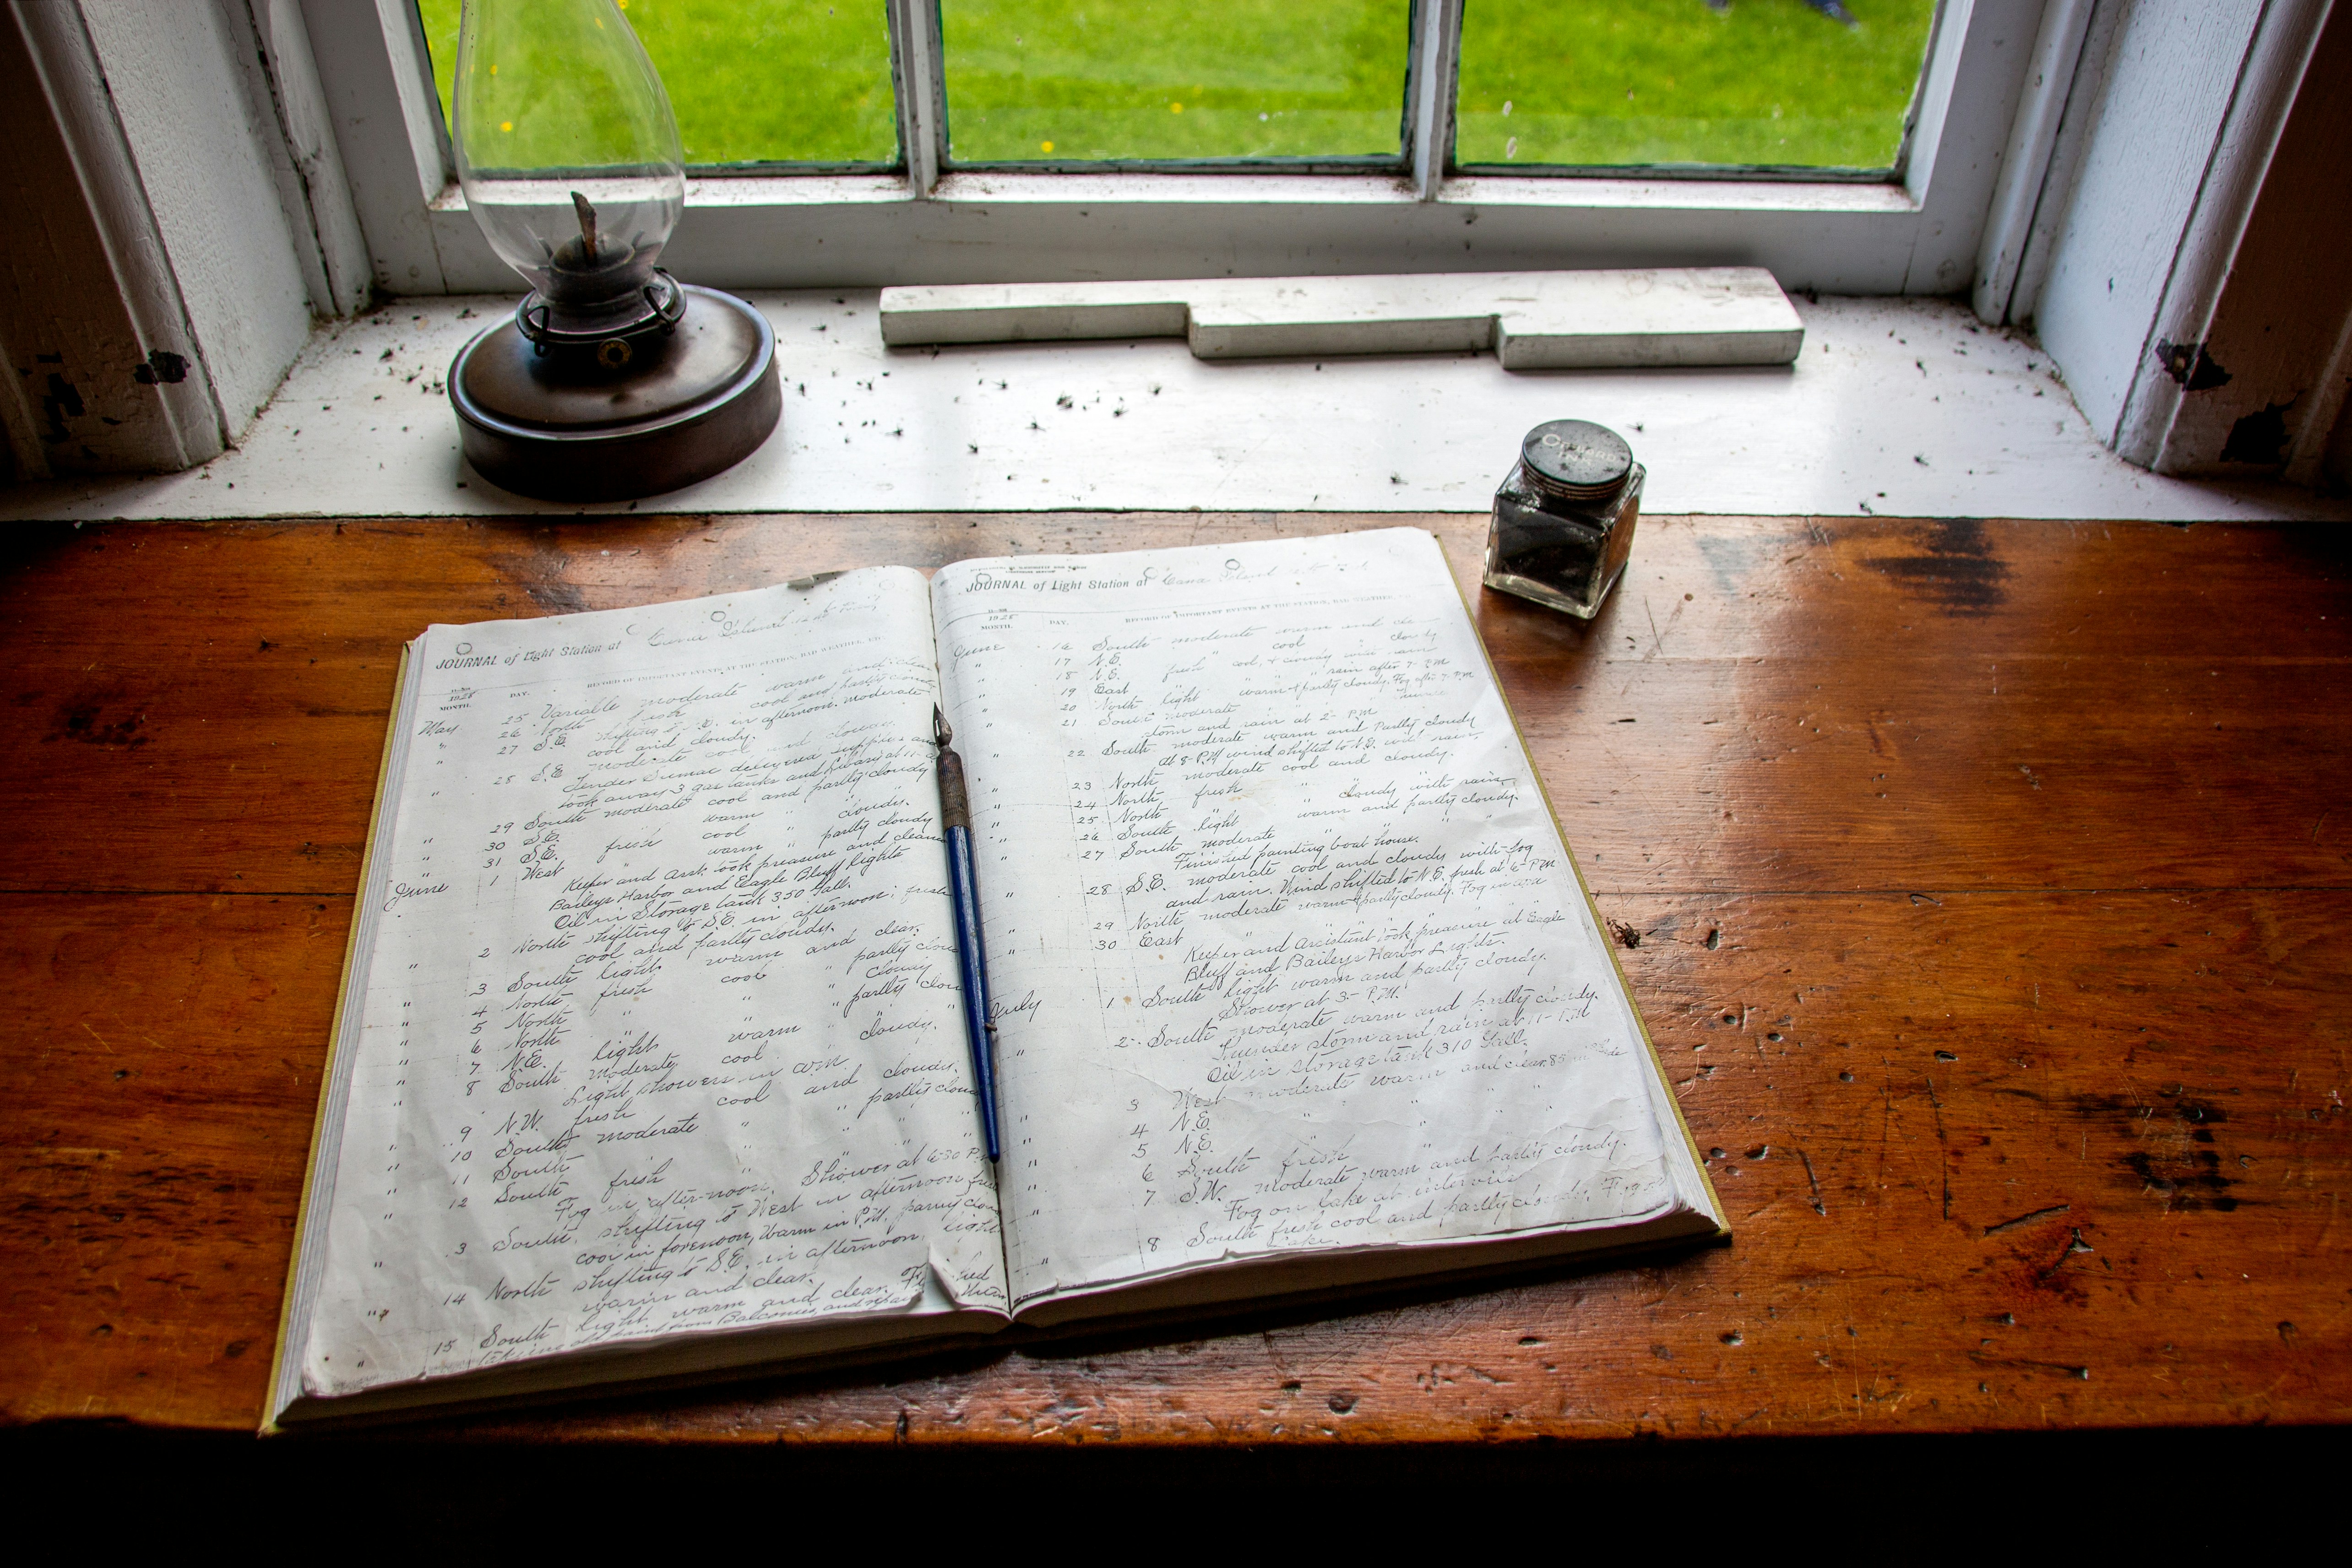 JOURNAL of Light Station at Cana Island
RECORD OF IMPORTANT EVENTS AT THE STATION, BAD WEATHER, ETC.
1928
MONTH. DAY.
May 25 Variable moderate warm and clear
" 26 North fresh cool and partly cloudy
" 27 S.E. shifting to N.E. in afternoon. moderate
cool and cloudy.
" 28 S.E. moderate cool and cloudy.
Tender Sumac delivered supplies and
took away 3 gas tanks and library at 11-
" 29 South moderate cool and partly cloudy
" 30 S.E. warm " cloudy.
" 31 S.E. fresh cool " partly cloudy
June 1 West warm " clear
Keeper and Asst. took preasure and cleaned
Baileys Harbor and Eagle Bluff lights
Oil in Storage tank 350 Gall.
" 2 North shifting to S.E. in afternoon; fresh
cool and partly cloudy.
" 3 South light warm and clear.
" 4 North fresh cool " partly cloudy
" 5 North " " " cloudy
" 6 North " " " partly cloudy
" 7 N.E. light warm " cloudy.
" 8 South moderate cool
Light showers in
" 9 N.W. fresh cool and cloudy.
" 10 South moderate " " partly cloudy
" 11 South " "
" 12 South fresh " Shower at 6-30 P.M.
Fog in after-noon.
" 3 South, shifting to West in afternoon fresh
cool in forenoon, Warm in P.M. partly cloudy
" 14 North shifting to S.E. in afternoon, light
warm and clear.
" 15 South light warm and clear.
old paint from Balconies, and
JOURNAL of Light Station at Cana Island
RECORD OF IMPORTANT EVENTS AT THE STATION, BAD WEATHER,
MONTH. DAY.
June 16 South moderate warm and
" 17 N.E. " cool cloudy
" 18 N.E. fresh cool, & cloudy with rain
" 19 East " " " rain after 7- P.M
" 20 North light warm & partly cloudy. Fog after 7. P.M
" 21 South moderate
storm and rain at 2- P.M
" 22 South moderate warm and Partly cloudy
At 8-P.M wind shifted to N.E. with rain,
" 23 North moderate cool and cloudy.
" 24 North fresh " "
" 25 North " " cloudy with rain,
" 26 South light warm and partly cloudy.
" 27 South moderate " " "
Finished painting boat house.
" 28 S.E. moderate cool and cloudy with fog
and rain. Wind shifted to N.E. fresh at 6-PM
" 29 North moderate warm & partly cloudy. Fog in
" 30 East " " "
Keeper and Assistant took preasure at Eagle
Bluff and Baileys Harbor Lights.
July 1 South light warm and partly cloudy.
Shower at 3- P.M.
" 2- South moderate warm and partly cloudy.
Thunder storm and rain at 11- P.M
Oil in storage tank 310 Gall.
3 West moderate warm and clear. 85
" 4 N.E. " " "
" 5 N.E. " " "
" 6 South fresh " "
" 7 S.W. moderate warm and partly cloudy.
Fog on lake at
" 8 South fresh cool and partly cloudy.
Lake.
INK